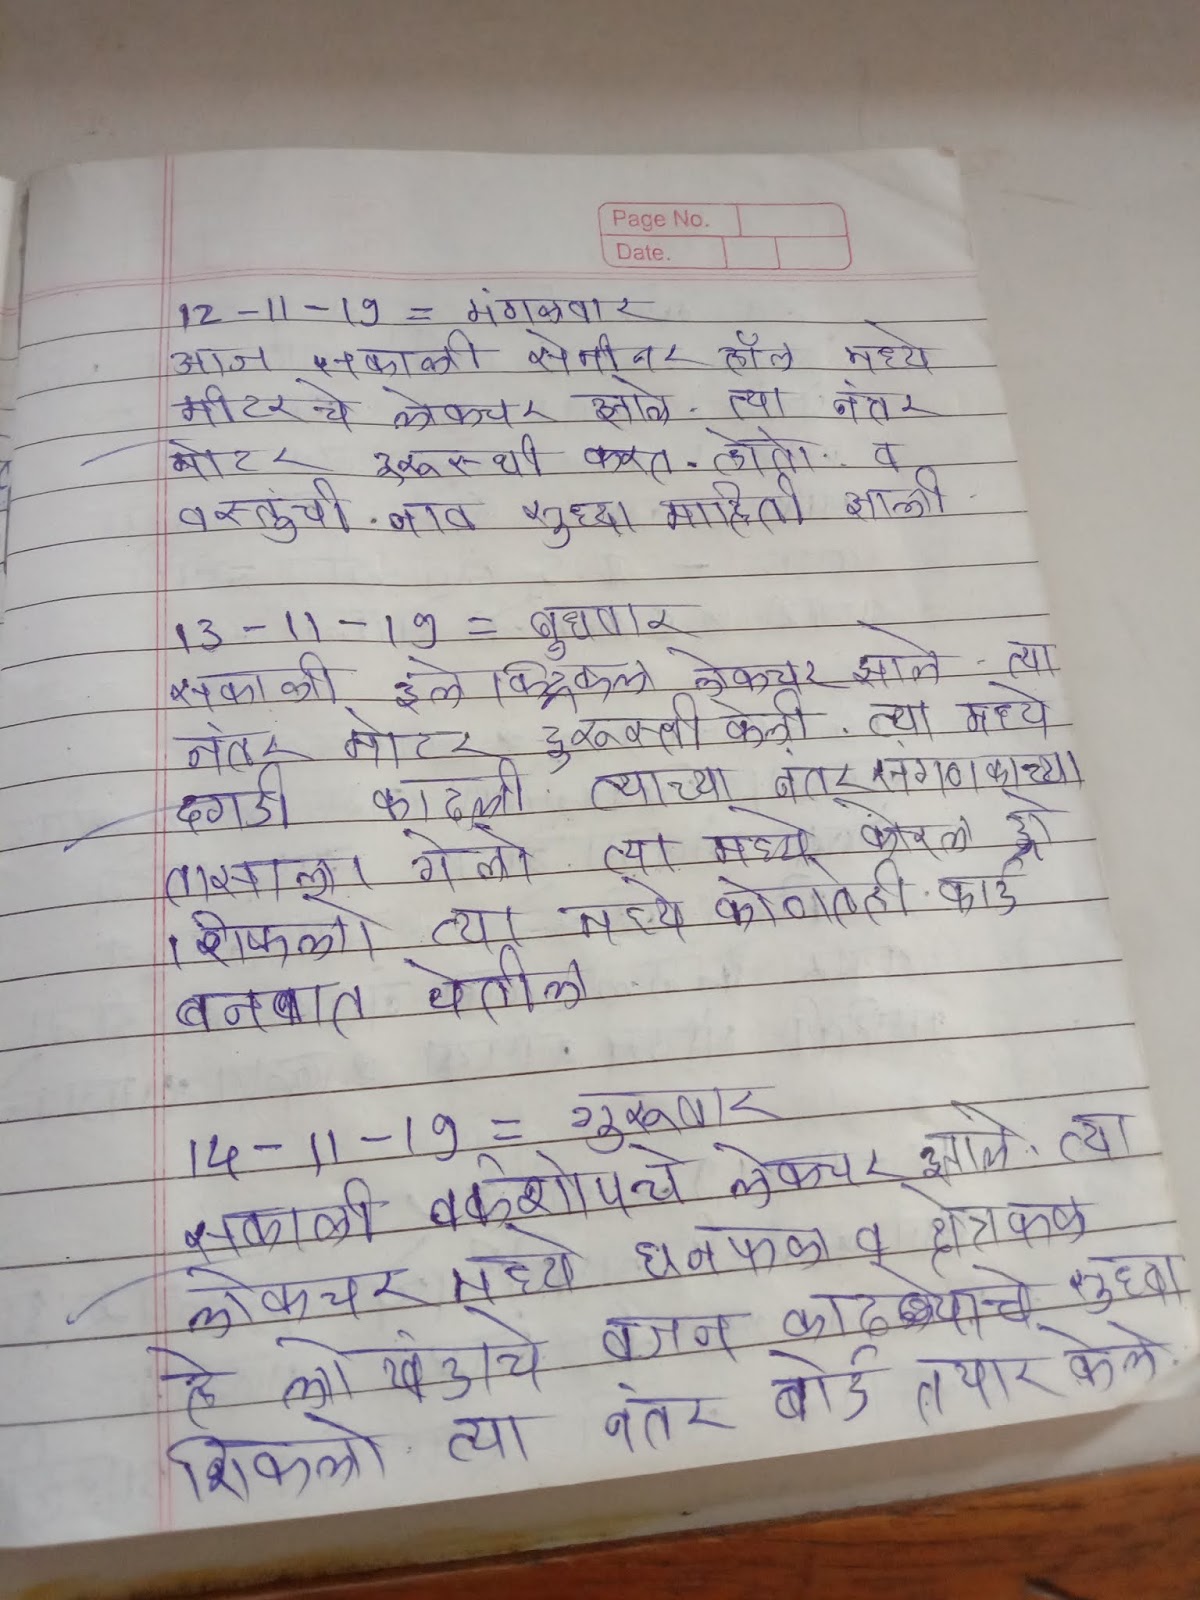 Page No.
Date.
12-11-19 = मंगळवार
आज सकाळी सेमीनर हॉल मध्ये
मीटरचे लेक्चर झाले. त्या नंतर
मोटर दुरूस्थी करत. होतो. व
वस्तुंची. नाव सुध्दा माहिती झाली.
13-11-19 = बुधवार
सकाळी इलेक्ट्रिकल लेक्चर झाले. त्या
नंतर मोटर दुरूस्ती केली. त्या मध्ये
दगडी काढली. त्याच्या नंतर संगणकाच्या
तासाला गेलो. त्या मध्ये कोरल ड्रो
शिकलो त्या मध्ये कोणतेही. कार्ड
बनवात येतील.
14-11-19 = गुरूवार
सकाळी वर्कशोपचे लेक्चर झाले. त्या
लेक्चर मध्ये घनफळ व क्षेत्रफळ
हे लोखंडाचे वजन काढण्याचे सुध्दा
शिकलो. त्या नंतर बोर्ड तयार केले.